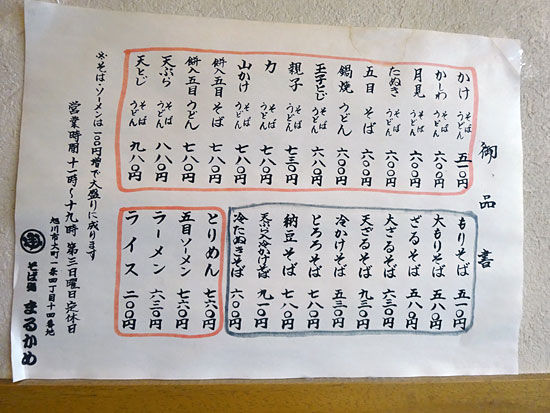 御品書
かけ そば うどん 五一〇円
かしわ そば うどん 六〇〇円
月見 そば うどん 六〇〇円
たぬき そば うどん 六〇〇円
五目 そば 六〇〇円
鍋焼 うどん 六八〇円
玉子とじ そば うどん 六八〇円
親子 そば うどん 七三〇円
力 そば うどん 七八〇円
山かけ そば うどん 七八〇円
餅入五目 そば 七八〇円
餅入五目 うどん 七八〇円
天ぷら そば うどん 八八〇円
天とじ そば うどん 九八〇円
もりそば 五一〇円
大もりそば 五八〇円
ざるそば 五八〇円
大ざるそば 六三〇円
天ざるそば 九三〇円
冷かけそば 五三〇円
とろろそば 七八〇円
納豆そば 七八〇円
天ぷら冷かけそば 九一〇円
冷たぬきそば 六〇〇円
とりめん 七六〇円
五目ソーメン 七六〇円
ラーメン 六三〇円
ライス 二〇〇円
※そば・ソーメンは一〇〇円増で大盛りに成ります
営業時間 十一時〜十九時 第三日曜日定休日
旭川市大町一条四丁目十四番地
そば処 まるかめ